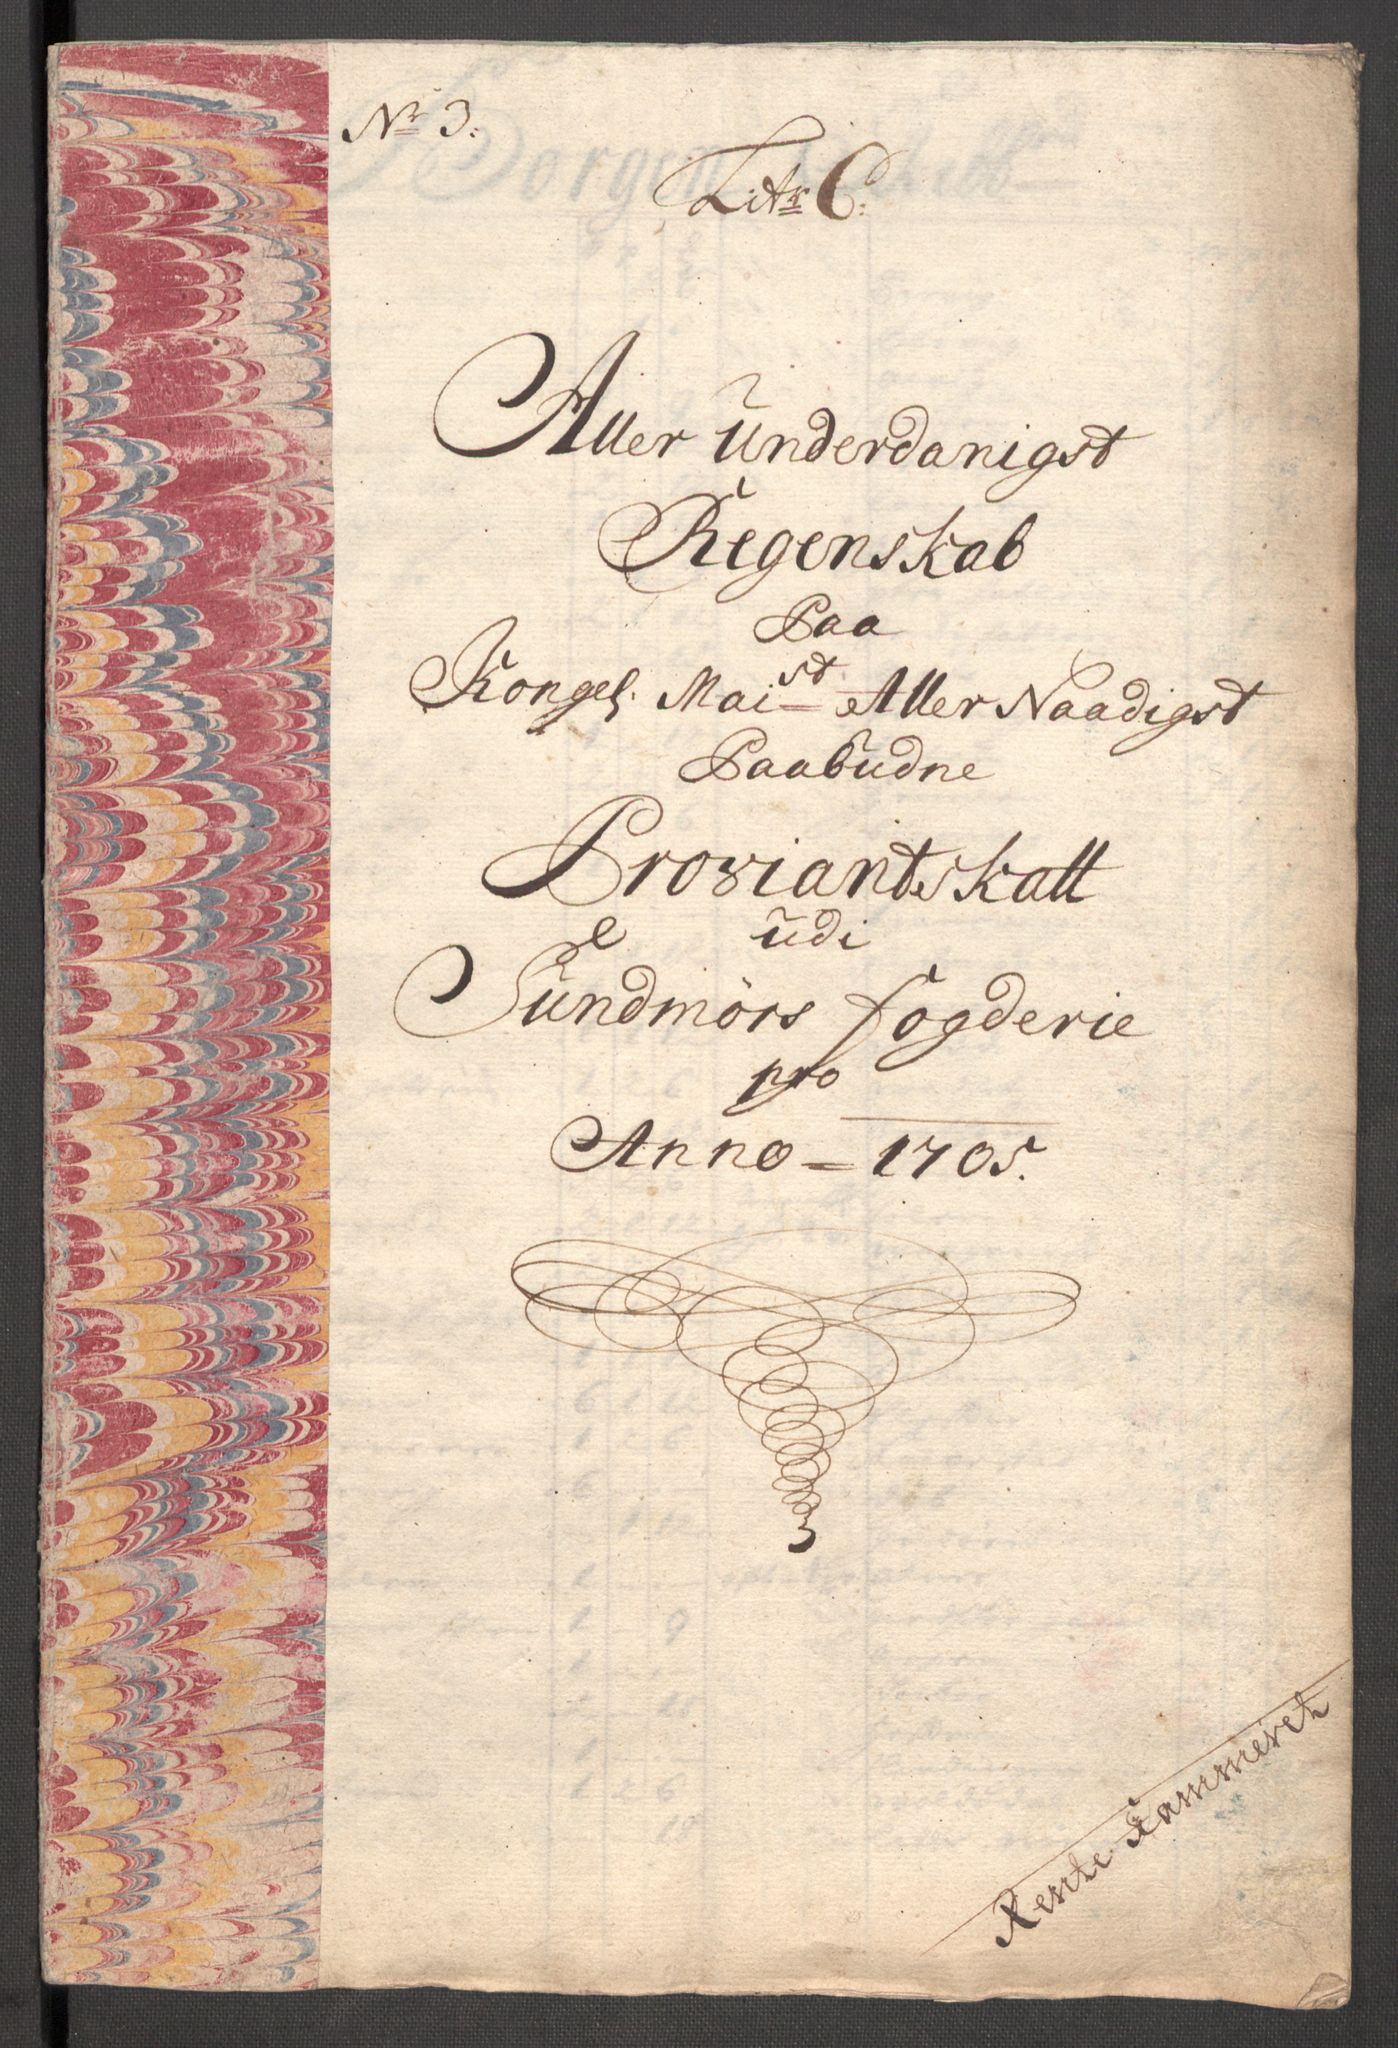 No 3.
Litr C:
Aller ünderdanigst
Regenskab
Paa
Kongel. Maist Aller Naadigst
Paabüdne
Proviantskatt
üdi
Sündmörs fogderie
pro
Anno = 1705.
Rente Kammeret